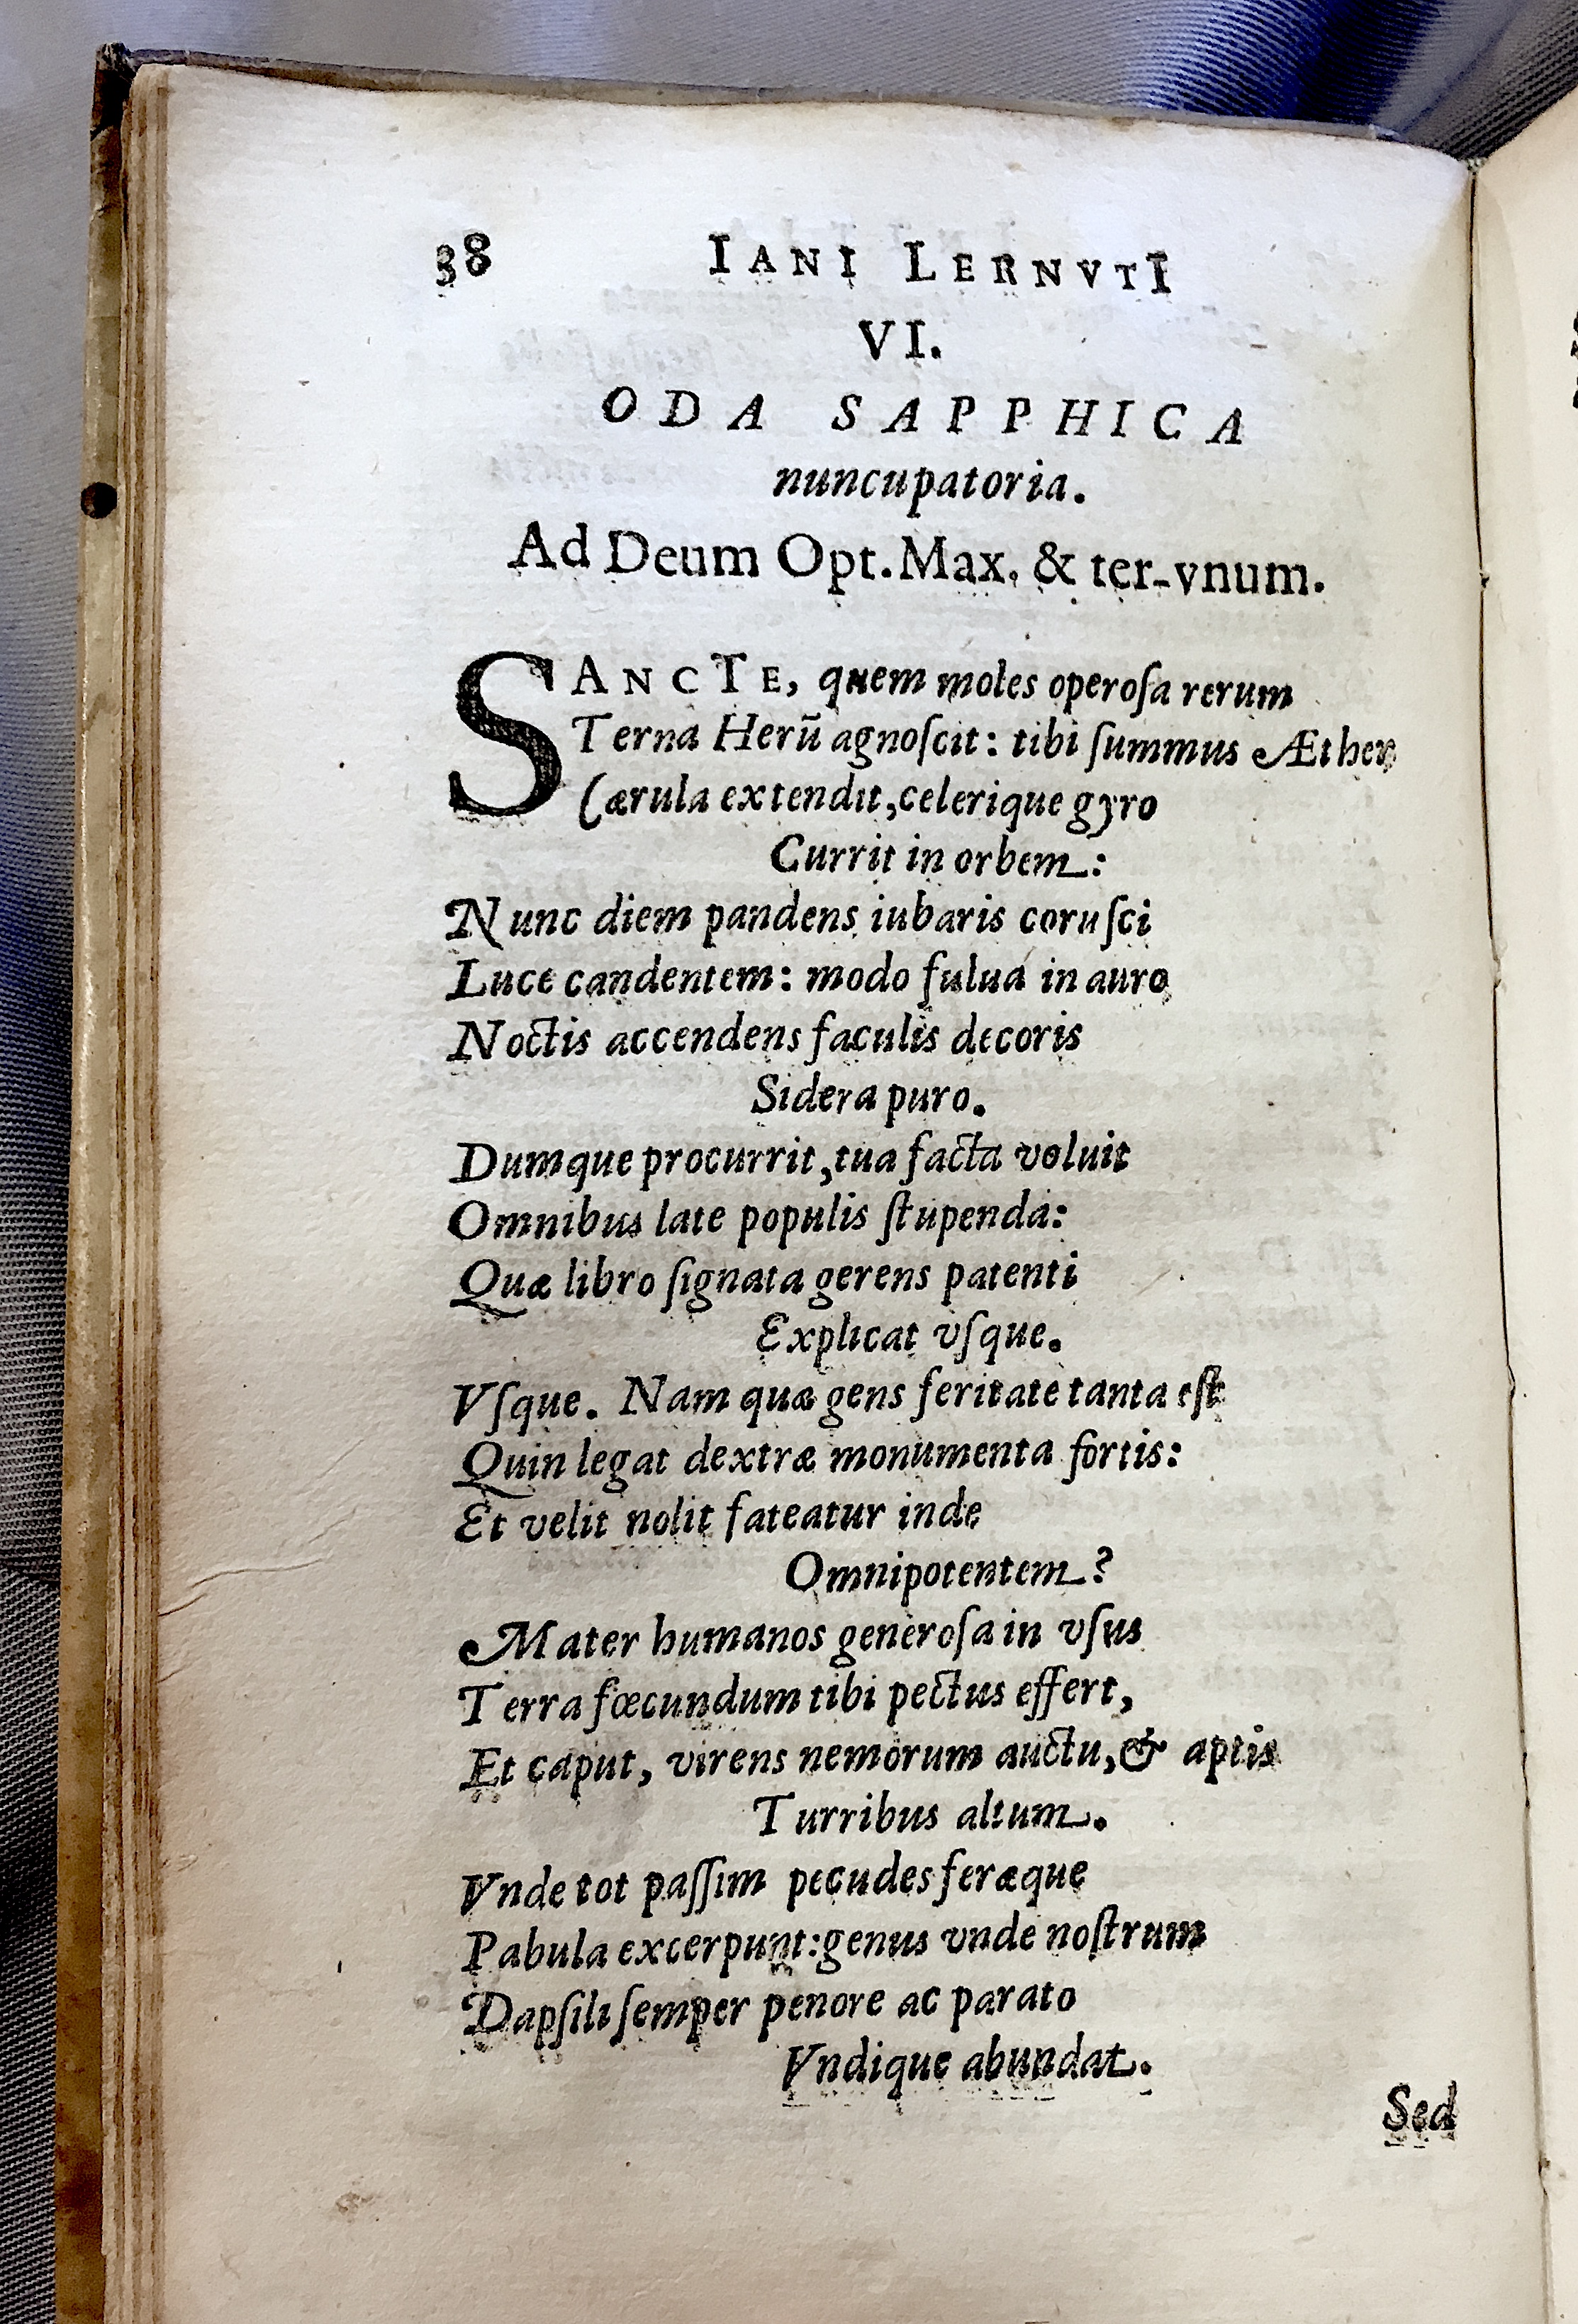 38 IANI LERNVTI
VI.
ODA SAPPHICA
nuncupatoria.
Ad Deum Opt. Max. & ter-vnum.
SANCTE, quem moles operoſa rerum
Terna Herũ agnoſcit: tibi ſummus Æther
Cærula extendit, celerique gyro
Currit in orbem:
Nunc diem pandens iubaris coruſci
Luce candentem: modo fuluá in auro
Noctis accendens faculis decoris
Sidera puro.
Dumque procurrit, tua facta voluit
Omnibus late populis ſtupenda:
Quæ libro ſignata gerens patenti
Explicat vſque.
Vſque. Nam quæ gens feritate tanta eſt
Quin legat dextræ monumenta fortis:
Et velit nolit fateatur inde
Omnipotentem?
Mater humanos generoſa in vſus
Terra fœcundum tibi pectus effert,
Et caput, virens nemorum auctu, & aptis
Turribus altum.
Vnde tot paſſim pecudes feræque
Pabula excerpunt: genus vnde noſtrum
Dapſili ſemper penore ac parato
Vndique abundat.
Sed